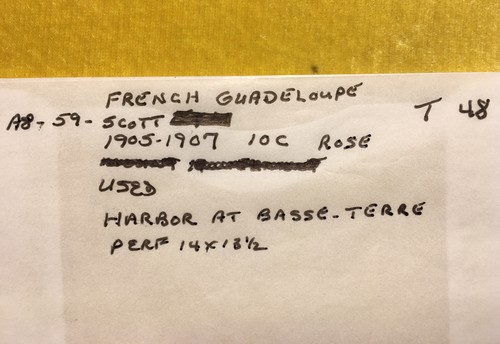 FRENCH GUADELOUPE
T 48
A8-59- SCOTT
1905-1907 10C ROSE
USED
HARBOR AT BASSE-TERRE
PERF 14X13½